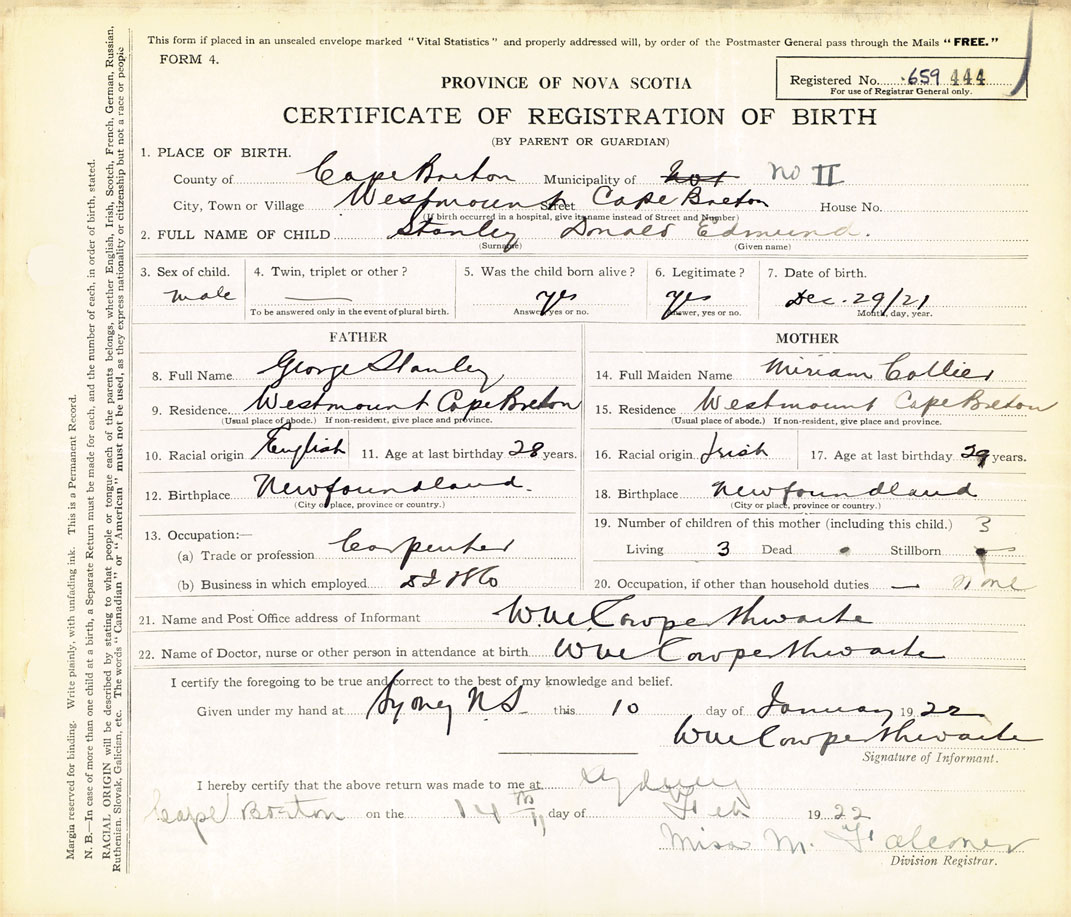 This form if placed in an unsealed envelope marked "Vital Statistics" and properly addressed will, by order of the Postmaster General pass through the Mails "FREE."
FORM 4.
Registered No. 659 444
For use of Registrar General only.
PROVINCE OF NOVA SCOTIA
CERTIFICATE OF REGISTRATION OF BIRTH
(BY PARENT OR GUARDIAN)
1. PLACE OF BIRTH.
County of Cape Breton Municipality of No II
City, Town or Village Westmount Street Cape Breton House No.
(If birth occurred in a hospital, give its name instead of Street and Number)
2. FULL NAME OF CHILD Stanley Donald Edmund.
(Surname) (Given name)
3. Sex of child. 4. Twin, triplet or other? 5. Was the child born alive? 6. Legitimate? 7. Date of birth.
male — yes yes Dec. 29/21
To be answered only in the event of plural birth. Answer, yes or no. Answer, yes or no. Month, day, year.
FATHER MOTHER
8. Full Name George Stanley 14. Full Maiden Name Miriam Collier
9. Residence. Westmount Cape Breton 15. Residence Westmount Cape Breton
(Usual place of abode.) If non-resident, give place and province. (Usual place of abode.) If non-resident, give place and province.
10. Racial origin English 11. Age at last birthday 28 years. 16. Racial origin Irish 17. Age at last birthday 29 years.
12. Birthplace Newfoundland. 18. Birthplace Newfoundland
(City or place, province or country.) (City or place, province or country.)
13. Occupation:— 19. Number of children of this mother (including this child.) 3
(a) Trade or profession Carpenter Living 3 Dead Stillborn
(b) Business in which employed 20. Occupation, if other than household duties — None
21. Name and Post Office address of Informant W.W. Cowperthwaite
22. Name of Doctor, nurse or other person in attendance at birth WW Cowperthwaite
I certify the foregoing to be true and correct to the best of my knowledge and belief.
Given under my hand at Sydney N.S. this 10 day of January 1922
WW Cowperthwaite
Signature of Informant.
I hereby certify that the above return was made to me at Sydney
Cape Breton on the 14th day of Feb 1922
Miss M. Falconer
Division Registrar.
Margin reserved for binding. Write plainly, with unfading ink. This is a Permanent Record.
N. B.—In case of more than one child at a birth, a Separate Return must be made for each, and the number of each, in order of birth, stated.
RACIAL ORIGIN will be described by stating to what people or tongue each of the parents belongs, whether English, Irish, Scotch, French, German, Russian,
Ruthenian, Slovak, Galician, etc. The words "Canadian" or "American" must not be used, as they express nationality or citizenship but not a race or people